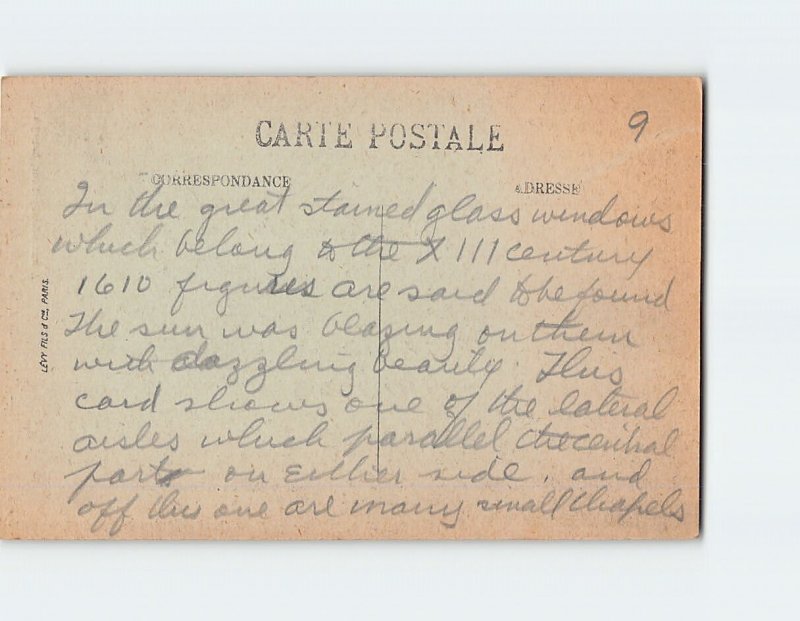 9
CARTE POSTALE
CORRESPONDANCE
ADRESSE
In the great stained glass windows
which belong to the XIII century
1610 figures are said to be found
The sun was blazing on them
with dazzling beauty. This
card shows one of the lateral
aisles which parallel the central
part on either side. and
off this one are many small chapels
LÉVY FILS & Cie, PARIS.